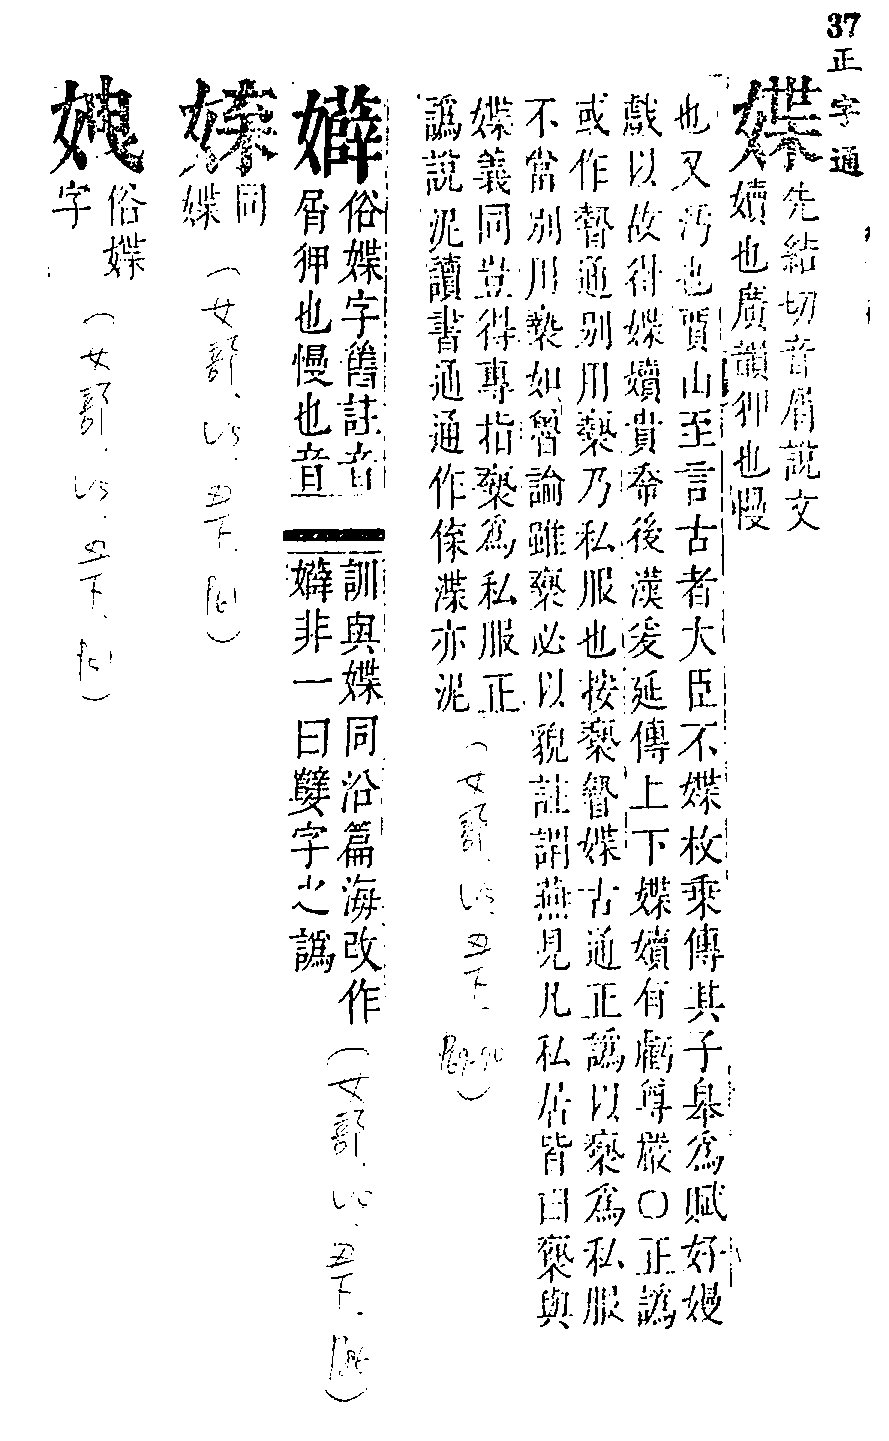 37
正字通
媟
先結切音屑說文
嬻也廣韻狎也慢
也又汚也賈山至言古者大臣不媟枚乘傳其子皋爲賦好嫚
戲以故得媟嬻貴幸後漢爰延傳上下媟嬻有虧尊嚴○正譌
或作暬通別用褻乃私服也按褻暬媟古通正譌以褻爲私服
不當別用褻如魯論雖褻必以貌註謂燕見凡私居皆曰褻與
媟義同豈得專指褻爲私服正
譌說泥讀書通通作㑛渫亦泥
(女部.
丑下.
嬖
俗媟字舊註音
屑狎也慢也音
訓與媟同沿篇海改作
非一曰孽字之譌
(女部.
丑下.
同
媟
(女部.
丑下.
俗媟
字
(女部.
丑下.